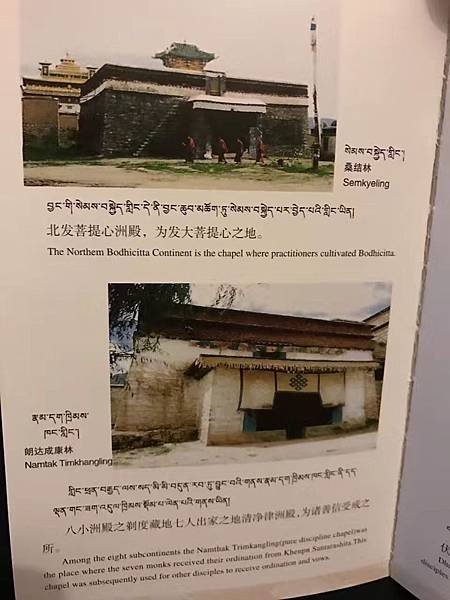 སེམས་བསྐྱེད་གླིང་།
桑结林
Semkyeling
བྱང་གི་སེམས་བསྐྱེད་གླིང་དེ་ནི་བྱང་ཆུབ་མཆོག་ཏུ་སེམས་བསྐྱེད་པར་བྱེད་པའི་གླིང་ཡིན།
北发菩提心洲殿，为发大菩提心之地。
The Northern Bodhicitta Continent is the chapel where practitioners cultivated Bodhicitta.
རྣམ་དག་ཁྲིམས་
ཁང་གླིང་།
朗达咸康林
Namtak Timkhangling
གླིང་ཕྲན་བརྒྱད་ལས་སད་མི་མི་བདུན་རབ་ཏུ་བྱུང་བའི་གནས་རྣམ་དག་ཁྲིམས་ཁང་གླིང་ནི་དད་
ལྡན་གང་ཟག་འདུལ་ཁྲིམས་སྡོམ་པ་ལེན་པའི་གནས་ཡིན།
八小洲殿之剃度藏地七人出家之地清净律洲殿，为诸善信受戒之
所。
Among the eight subcontinents the Namthak Trimkangling(pure discipline chapel)was
the place where the seven monks received their ordination from Khenpn Santarashita.This
chapel was subsequently used for other disciples to receive ordination and vows.
伏
Dha
disciples